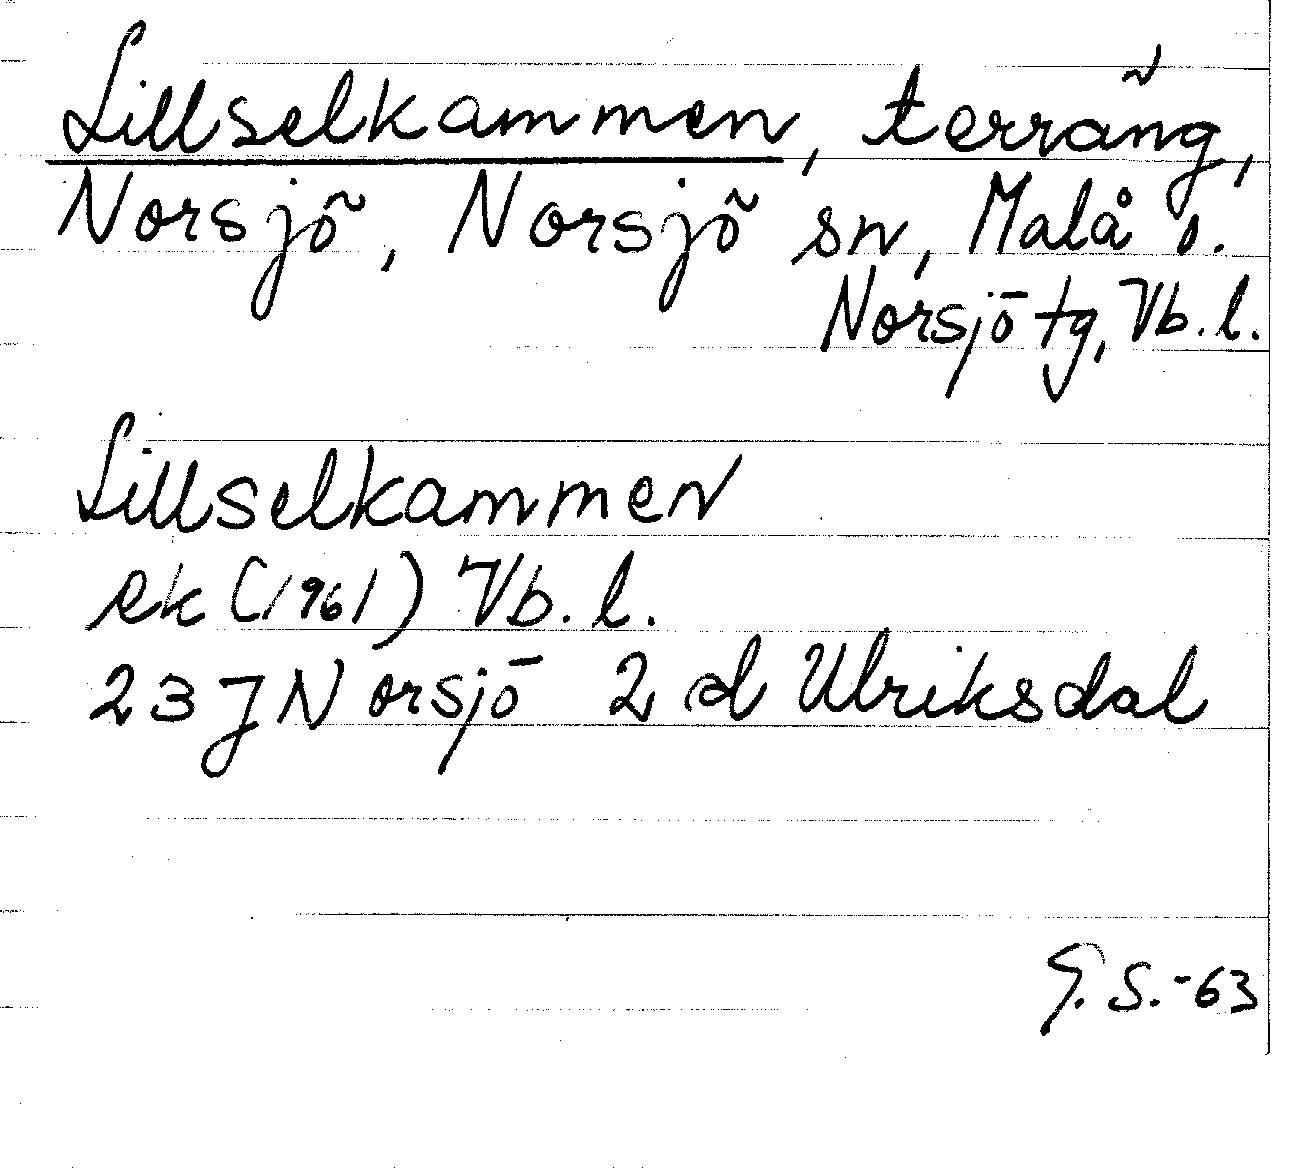 Lillselkammen, terräng,
Norsjö, Norsjö sn, Malå o.
Norsjö tg, Vb. l.
Lillselkammen
ek (1961) Vb. l.
23 J Norsjö 2 d Ulriksdal
G. S. -63